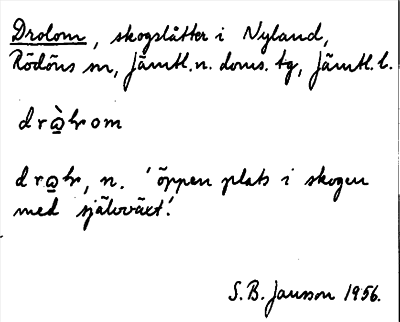 Drolom, skogslåtter i Nyland,
Rödöns sn, Jämtl.n. doms. tg, Jämtl. l.
drà̲ɫom
dra̲ɫ, n. 'öppen plats i skogen
med självväxt'.
S.B. Jansson 1956.